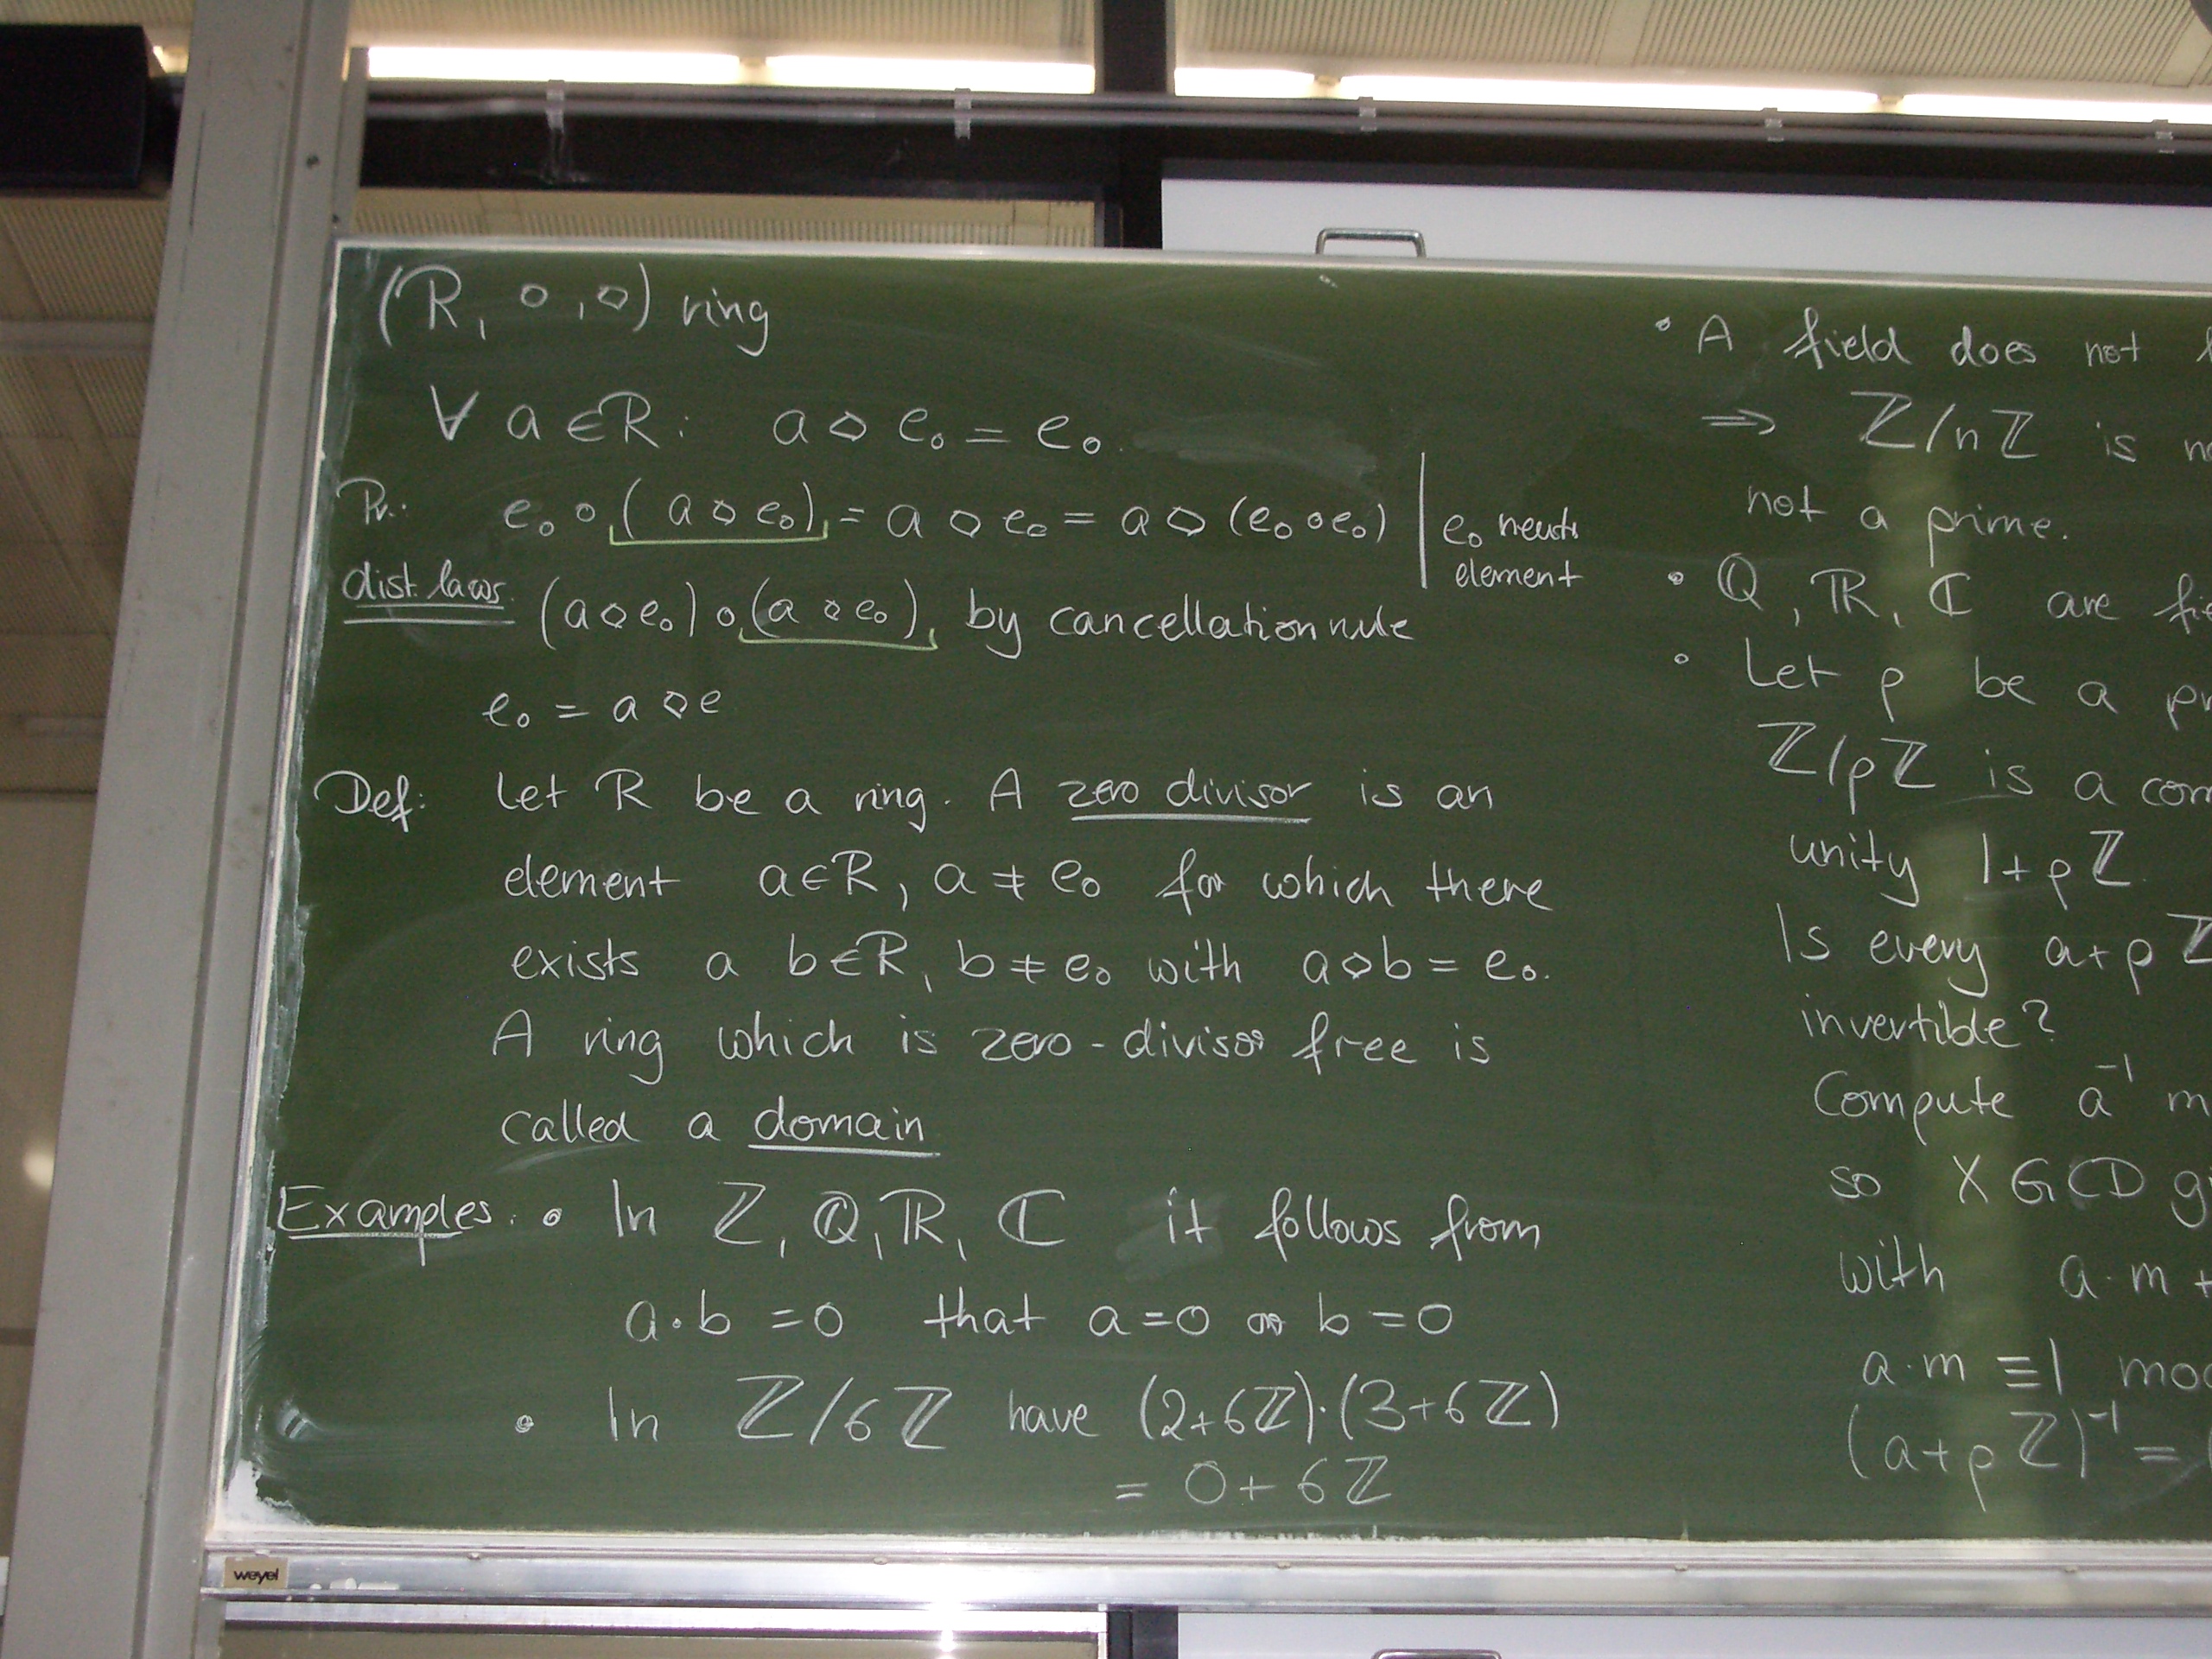 (R, ∘, ⋄) ring
∀ a ∈ R: a ⋄ e₀ = e₀.
Pr.: e₀ ∘ (a ⋄ e₀) = a ⋄ e₀ = a ⋄ (e₀ ∘ e₀) | e₀ neutr
element
dist. laws (a ⋄ e₀) ∘ (a ⋄ e₀), by cancellation rule
e₀ = a ⋄ e
Def: Let R be a ring. A zero divisor is an
element a ∈ R, a ≠ e₀ for which there
exists a b ∈ R, b ≠ e₀ with a ⋄ b = e₀.
A ring which is zero-divisor free is
called a domain
Examples: • In ℤ, ℚ, ℝ, ℂ it follows from
a·b = 0 that a = 0 or b = 0
• In ℤ/6ℤ have (2+6ℤ)·(3+6ℤ)
= 0 + 6ℤ
• A field does not
⇒ ℤ/nℤ is
not a prime.
• ℚ, ℝ, ℂ are
• Let p be a
ℤ/pℤ is a
unity 1+pℤ.
Is every a+pℤ
invertible?
Compute a⁻¹
so XGCD
with a·m +
a·m ≡ 1
(a+pℤ)⁻¹ =
weyel